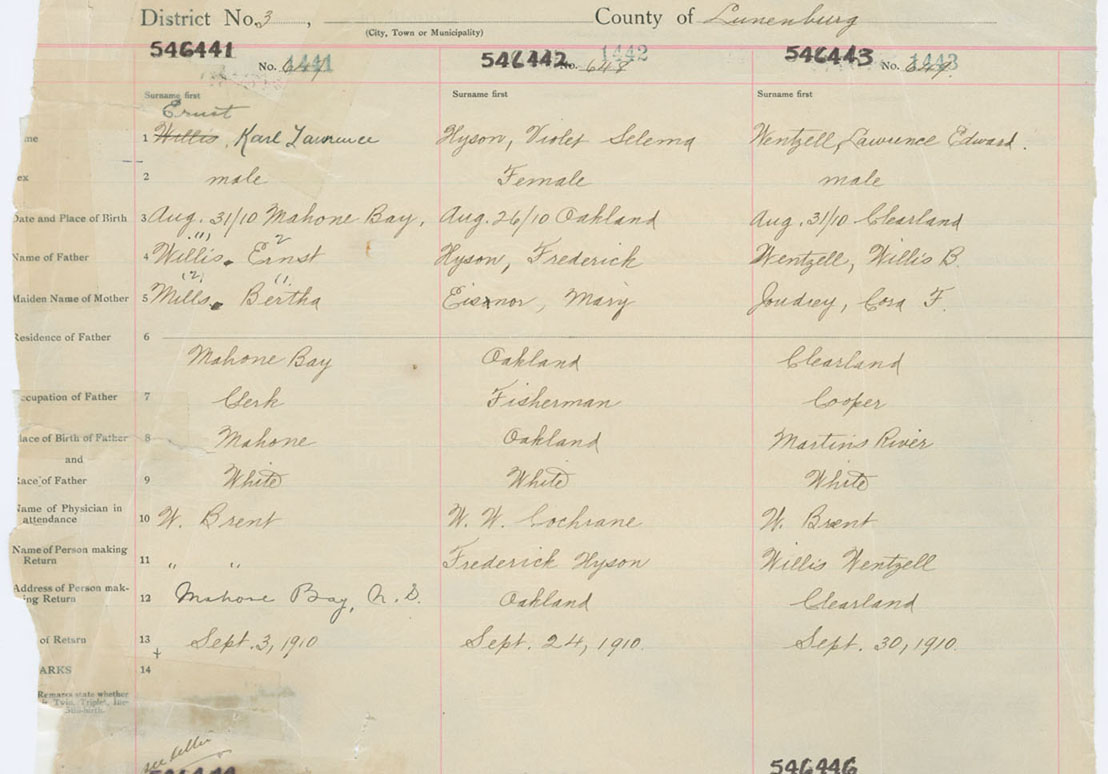 District No. 3 , County of Lunenburg
(City, Town or Municipality)
546441 546442 546443
No. 1441 No. 648 1442 No. 1443
Surname first Surname first Surname first
Ernst
me 1 Willis, Karl Lawrence Hyson, Violet Selema Wentzell, Lawrence Edward.
ex 2 male Female male
Date and Place of Birth 3 Aug. 31/10 Mahone Bay, Aug. 26/10 Oakland Aug. 31/10 Clearland
"(1)" 2
Name of Father 4 Willis. Ernst Hyson, Frederick Wentzell, Willis B.
(2) (1)
Maiden Name of Mother 5 Mills. Bertha Eisnor, Mary Joudrey, Cora F.
Residence of Father 6
Mahone Bay Oakland Clearland
ccupation of Father 7 Clerk Fisherman Cooper
lace of Birth of Father 8 Mahone Oakland Martins River
and
Race of Father 9 White White White
Name of Physician in attendance 10 W. Brent W. W. Cochrane W. Brent
Name of Person making Return 11 " " Frederick Hyson Willis Wentzell
Address of Person mak-ing Return 12 Mahone Bay, N.S. Oakland Clearland
of Return 13 Sept. 3, 1910 Sept. 24, 1910. Sept. 30, 1910.
ARKS 14
Remarks state whether
Twin, Triplet, Ille-
Still-birth.
see letter
546446